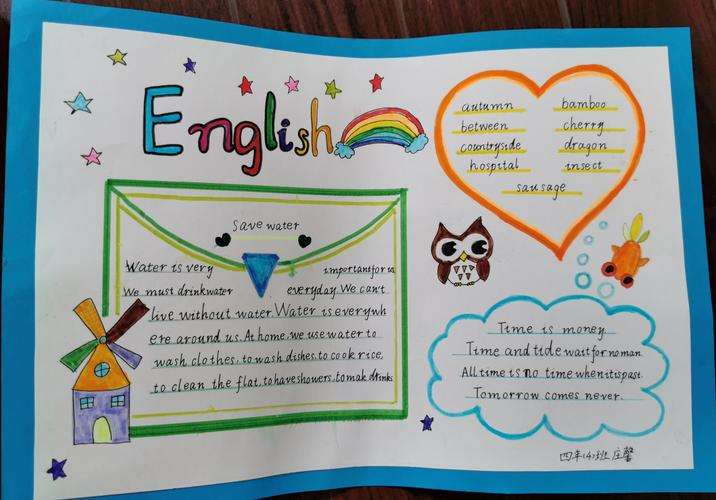 English
autumn bamboo
between cherry
countryside dragon
hospital insect
sausage
Save water
Water is very important for us
We must drink water everyday. We can't
live without water. Water is everywh
ere around us. At home, we use water to
wash clothes, to wash dishes, to cook rice,
to clean the flat, to have showers, to mak drinks
Time is money.
Time and tide wait for no man.
All time is no time when it is past.
Tomorrow comes never.
四年(4)班 庄馨